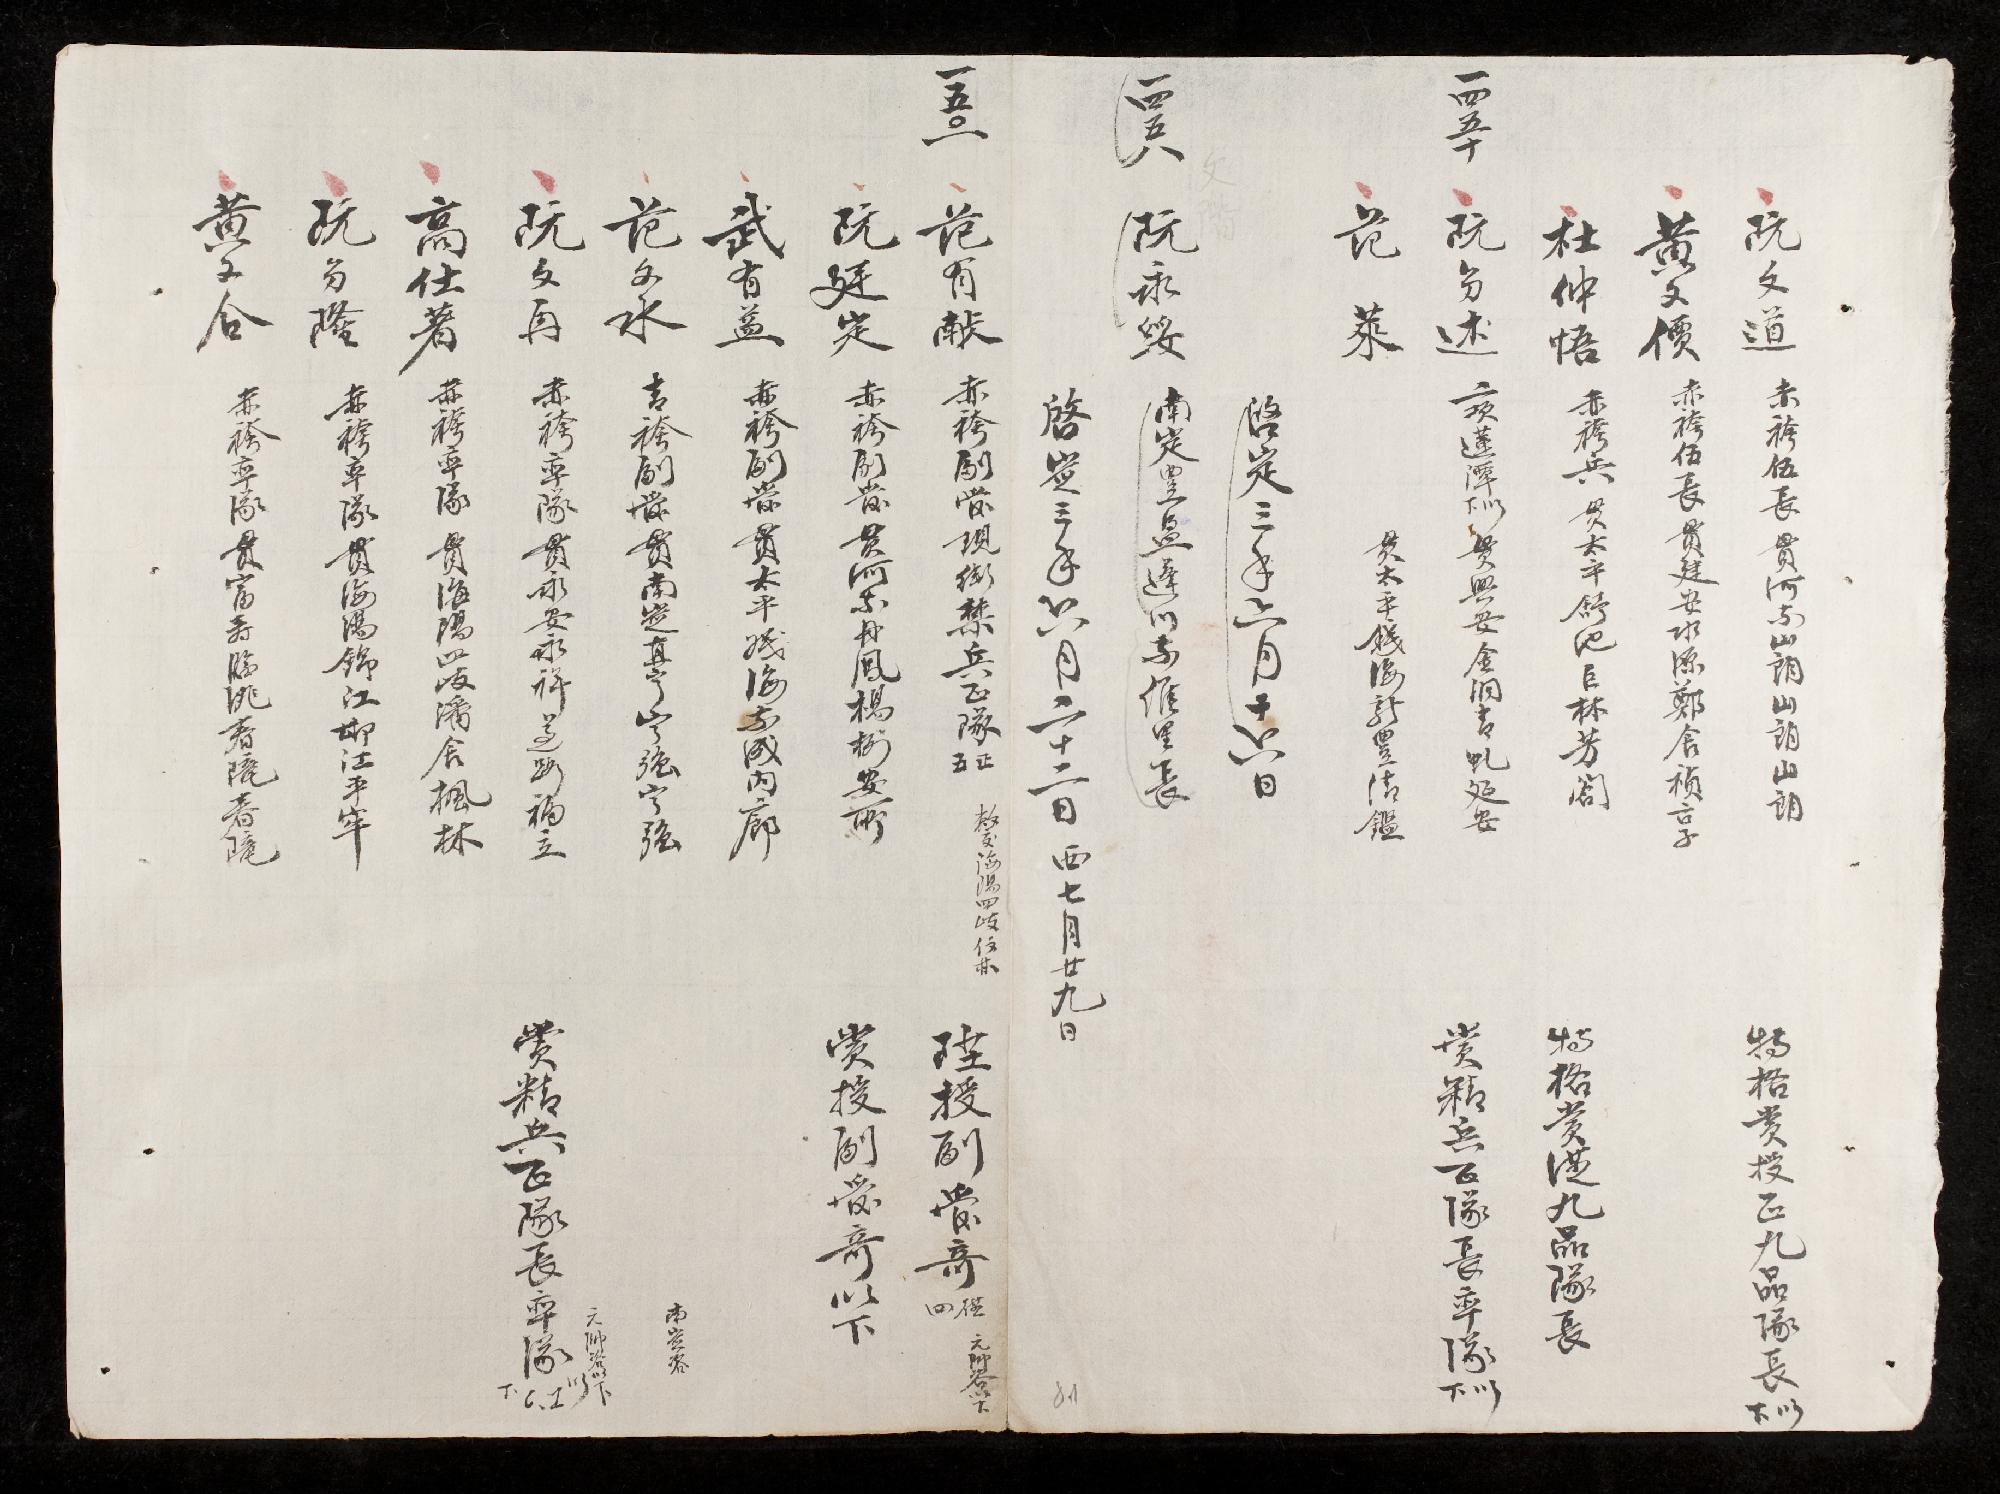 阮文道 赤袴伍長 貫河東山朗山朗山朗 特格賞授正九品隊長以下
黄文價 赤袴伍長 貫建安水源鄭舍楨
杜仲悟 赤袴兵 貫太平舒池巨林芳閣 特格賞從九品隊長
一四五十 阮芳述 蓮潭以下 貫興安金洞吉 延安 賞精兵正隊長率隊以下
范萊 貫太平錢海新豊清鑑
啓定三年六月十六日
一四五八 阮永綏 南定豊盈 東惟里長
啓定三年六月二十二日 西七月廿九日
一五〇一 范有献 赤袴副管現街禁兵正隊正五 海陽四岐 陞授副管奇從四 元帥答以下
阮廷定 赤袴副管 貫河東丹鳳楊柳安所 賞授副管奇以下
武有益 赤袴副管 貫太平錢海東成内廊
范文水 青袴副管 貫南定真寧寧强寧强 南定答
阮文再 赤袴率隊 貫永安永祥 福立 賞精兵正隊長率隊以下 元帥答以下
高仕著 赤袴率隊 貫海陽四岐潘舍楓林
阮芳隆 赤袴率隊 貫海陽錦江 江平牢
黄文合 赤袴率隊 貫富壽臨洮春隴春隴